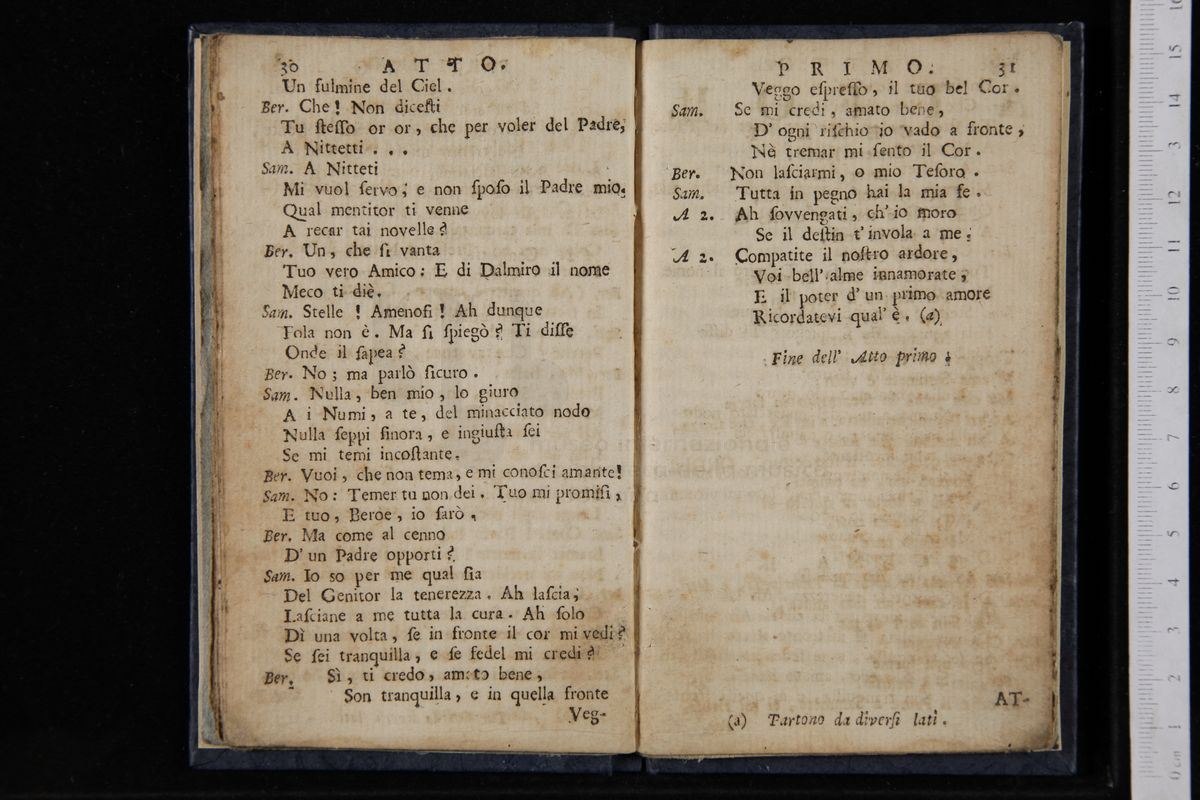 30 ATTO.
Un fulmine del Ciel.
Ber. Che! Non dicesti
Tu ſteſſo or or, che per voler del Padre,
A Nittetti . . .
Sam. A Nitteti
Mi vuol ſervo, e non ſpoſo il Padre mio.
Qual mentitor ti venne
A recar tai novelle?
Ber. Un, che ſi vanta
Tuo vero Amico: E di Dalmiro il nome
Meco ti diè.
Sam. Stelle! Amenofi! Ah dunque
Iola non è. Ma ſi ſpiegò? Ti diſſe
Onde il ſapea?
Ber. No; ma parlò ſicuro.
Sam. Nulla, ben mio, lo giuro
A i Numi, a te, del minacciato nodo
Nulla ſeppi ſinora, e ingiuſta ſei
Se mi temi incoſtante.
Ber. Vuoi, che non tema, e mi conoſci amante!
Sam. No: Temer tu non dei. Tuo mi promiſi,
E tuo, Beroe, io ſarò,
Ber. Ma come al cenno
D' un Padre opporti?
Sam. Io so per me qual ſia
Del Genitor la tenerezza. Ah laſcia,
Laſciane a me tutta la cura. Ah ſolo
Dì una volta, ſe in fronte il cor mi vedi?
Se ſei tranquilla, e ſe fedel mi credi?
Ber. Sì, ti credo, amato bene,
Son tranquilla, e in quella fronte
Veg-
PRIMO. 31
Veggo eſpreſſo, il tuo bel Cor.
Sam. Se mi credi, amato bene,
D' ogni riſchio io vado a fronte,
Nè tremar mi ſento il Cor.
Ber. Non laſciarmi, o mio Teſoro.
Sam. Tutta in pegno hai la mia fe.
A 2. Ah ſovvengati, ch' io moro
Se il deſtin t' invola a me.
A 2. Compatite il noſtro ardore,
Voi bell' alme innamorate,
E il poter d' un primo amore
Ricordatevi qual' è. (a)
Fine dell' Atto primo.
AT-
(a) Partono da diverſi lati.
0 cm 1 2 3 4 5 6 7 8 9 10 11 12 13 14 15 16